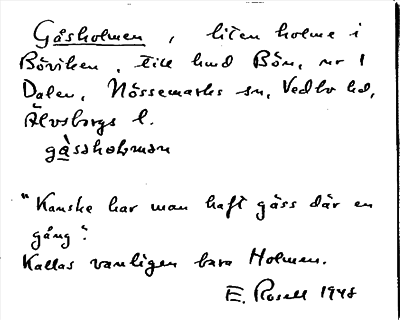 Gåsholmen, liten holme i
Böviken, till hmd Bön, nr 1
Dalen, Nössemarks sn, Vedbo hd,
Älvsborgs l.
gåsshɷlman
"Kanske har man haft gäss där en
gång".
Kallas vanligen bara Holmen.
E. Rosell 1948